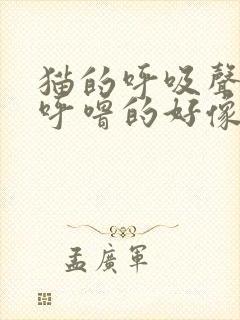 猫的呼吸聲
呼嚕的好像
孟廣軍